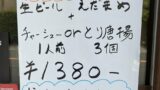 生ビール + えだまめ
チャーシュー or とり唐揚
1人前 3個
¥1380-